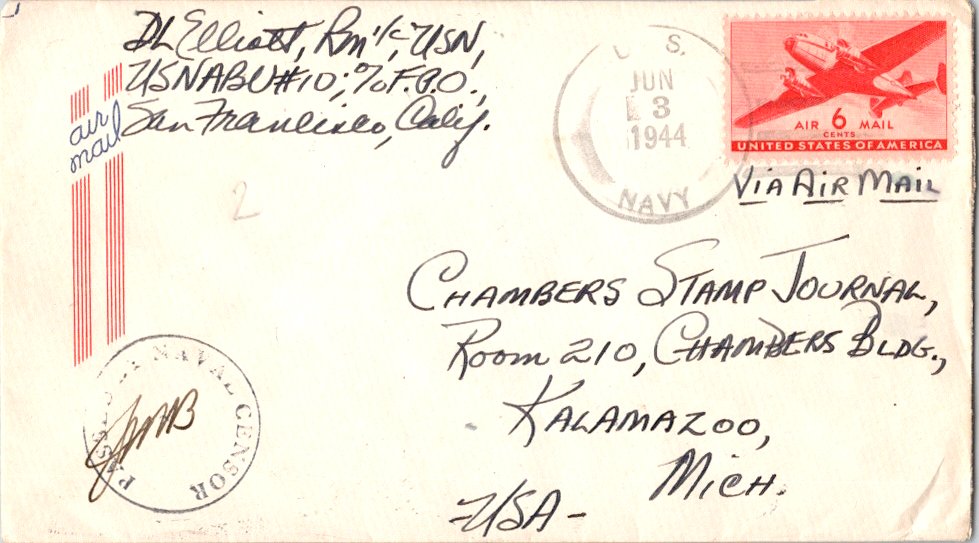 DL Elliott, Rm 1/c, USN,
USNABU#10; % F.P.O.,
San Francisco, Calif.
air
mail
2
U. S.
JUN
3
1944
NAVY
AIR 6 MAIL
CENTS
UNITED STATES OF AMERICA
VIA AIR MAIL
CHAMBERS STAMP JOURNAL,
ROOM 210, CHAMBERS BLDG.,
KALAMAZOO,
MICH.
-USA-
PASSED BY NAVAL CENSOR